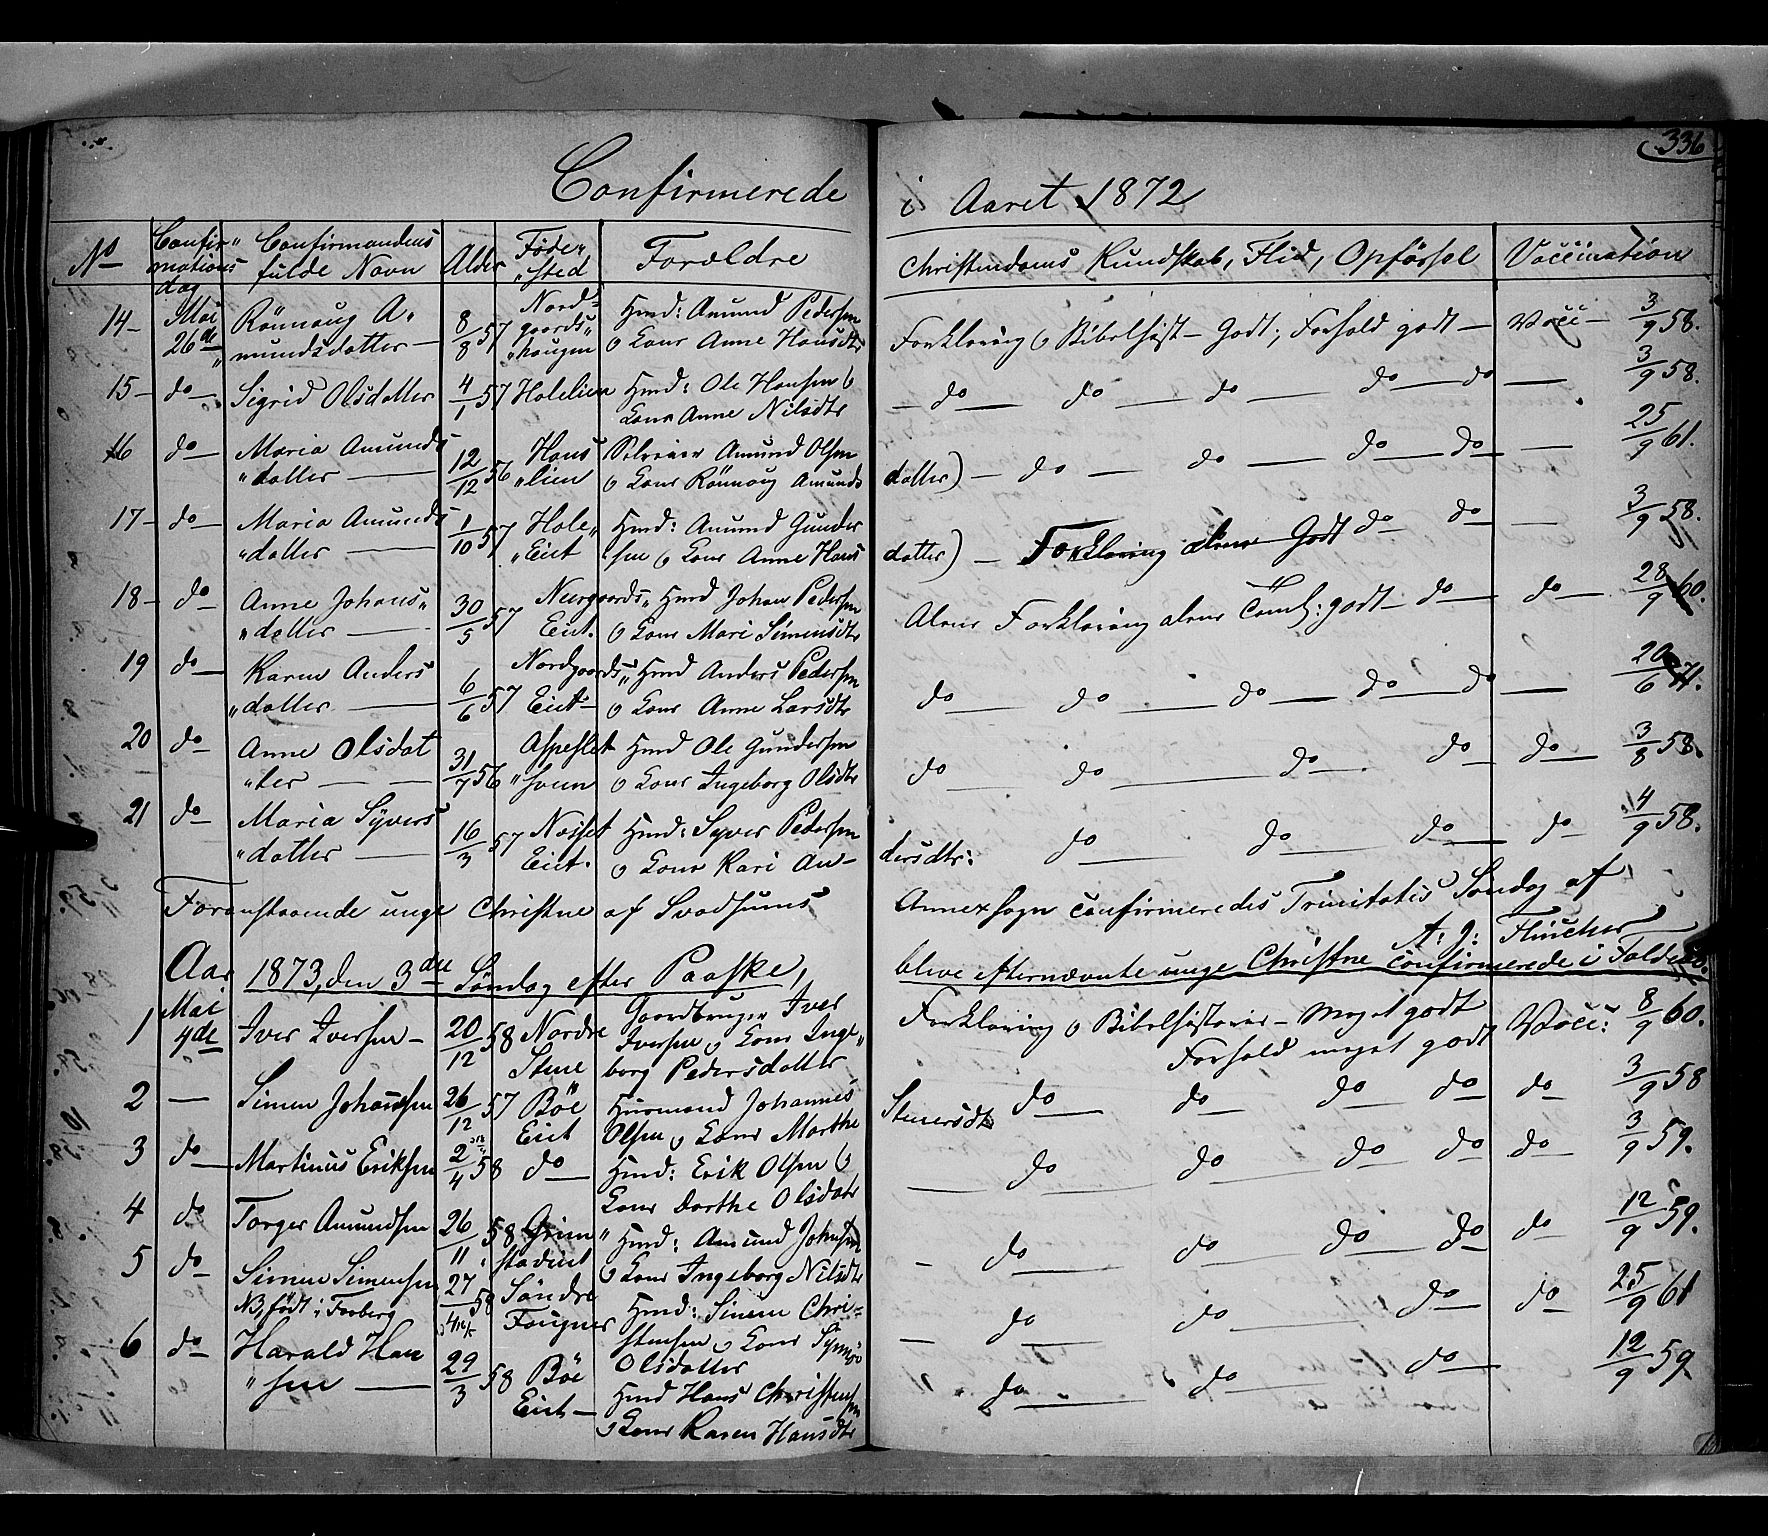 336
Confirmerede i Aaret 1872
No Confirmations dag Confirmandens fulde Navn Alder Føde„sted Forældre Christendoms Kundskab, Flid, Opförsel Vaccination
14 – Mai 26de Rönnaug A„mundsdatter — 8/8 57 Nordgaards„haugen Hmd: Amund Pedersen o Kone Anne Hansdtr Forklaring o Bibelhist – Godt; Forhold godt — Vacc – 3/9 58.
15 – do — Sigrid Olsdatter 4/1 57 Holelien Hmd: Ole Hansen o Kone Anne Nilsdtr — do — do — do — do — do — 3/9 58.
16 do — Maria Amunds„datter — 12/12 56 Haus„lien Selveier Amund Olsen o Kone Rönnoug Amunds datter) — do — do — do — do — 25/9 61.
17 – do — Maria Amunds„datter — 1/10 57 Hole„Eiet Hmd: Amund Gundersen o Kone Anne Hans datter) — Forklaring alene Godt do do — 3/9 58.
18 – do Anne Johans„datter — 30/5 57 Nurgaards„Eiet. Hmd Johan Pedersen o Kone Mari Simensdtr Alene Forklaring alene Temml: godt – do — do — 28/9 60.
19 do — Karen Anders„datter — 6/6 57 Nordgaards„Eiet – Hmd Anders Pedersen o Kone Anne Larsdtr do — do — do — do — do — 20/6 71.
20 do — Anne Olsdat„ter — 31/7 56 Aspeslet„sveen Hmd Ole Gundersen o Kone Ingeborg Olsdtr do do — do — do do — 3/8 58.
21 do — Maria Syvers„datter — 16/3 57 Eiet. Hmd: Syver Pedersen o Kone Kari An– dersdtr: do — do — do — do 4/9 58.
Foranstaaende unge Christne af Svadsums Annexsogn confirmeredes Trinitatis Søndag af
A: J:
Aar 1873, den 3die Søndag efter Paaske, bleve efternævnte unge Christne Confirmerede i
1 Mai 4de Iver Iversen – 20/12 58 Nordre Stene Gaardbruger Iver Iversen o Kone Inge„borg Pedersdatter Forklaring o Bibelhistorie – Meget godt Forhold meget godt Vacc: 8/9 60.
2 — Simen Johansen 26/12 57 Böe Eiet Husmand Johannes Olsen o Kone Marthe Steuersdtr do — do — do do do 3/9 58
3 do — Martinus Eriksen 2/4 58 do — Hmd: Erik Olsen o Kone Dorthe Olsdatr — do — do — do do do — 3/9 59.
4 do Torger Amundsen 26/11 58 Grim„stadeiet Hmd: Amund Johnsen o Kone Ingeborg Nilsdtr — do — do — do — do do 12/9 59.
5 do Simen Simensen NB, født i Faaberg 27/4 58 Søndre Fougner Hmd: Simen Christensen o Kone Synnöv Olsdatter — do — do — do — do 25/9 61
6 do Harald Han„sen — 29/3 58 Böe Eiet — Hmd Hans Christensen o Kone Karen Hansdtr do — do — do — 12/9 59